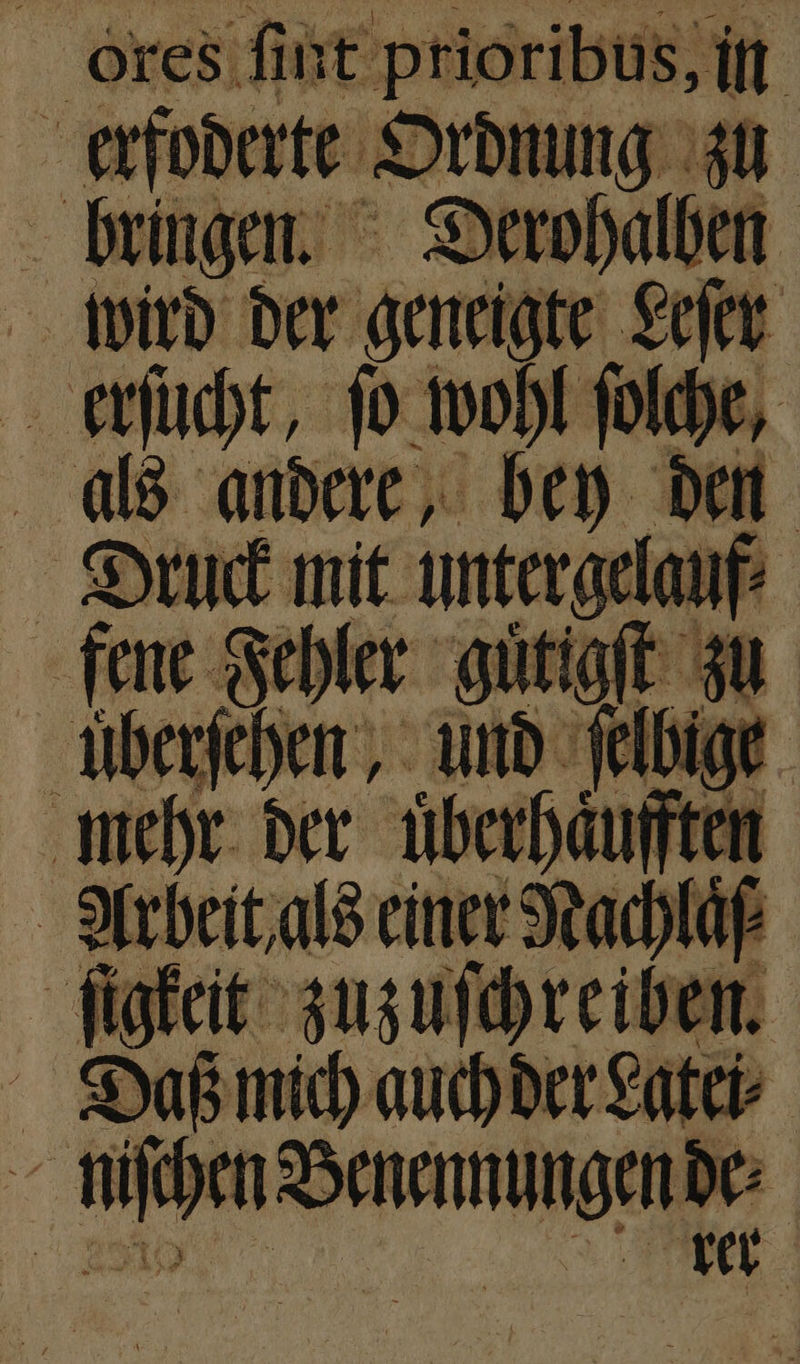 ores ſint prioribus, in
erfoderte Ordnung zu
bringen. Derohalben
wird der geneigte Leſer
erſucht, ſo wohl ſolche,
als andere, bey den
Druck mit untergelauf⸗
fene Fehler guͤtigſt zu
uͤberſehen, und ſelbige
mehr der uͤberhaͤufften
Arbeit, als einer Nachlaͤſ⸗
ſigkeit zuzuſchreiben.
Daß mich auch der Latei⸗
niſchen Benennungen de⸗
rer